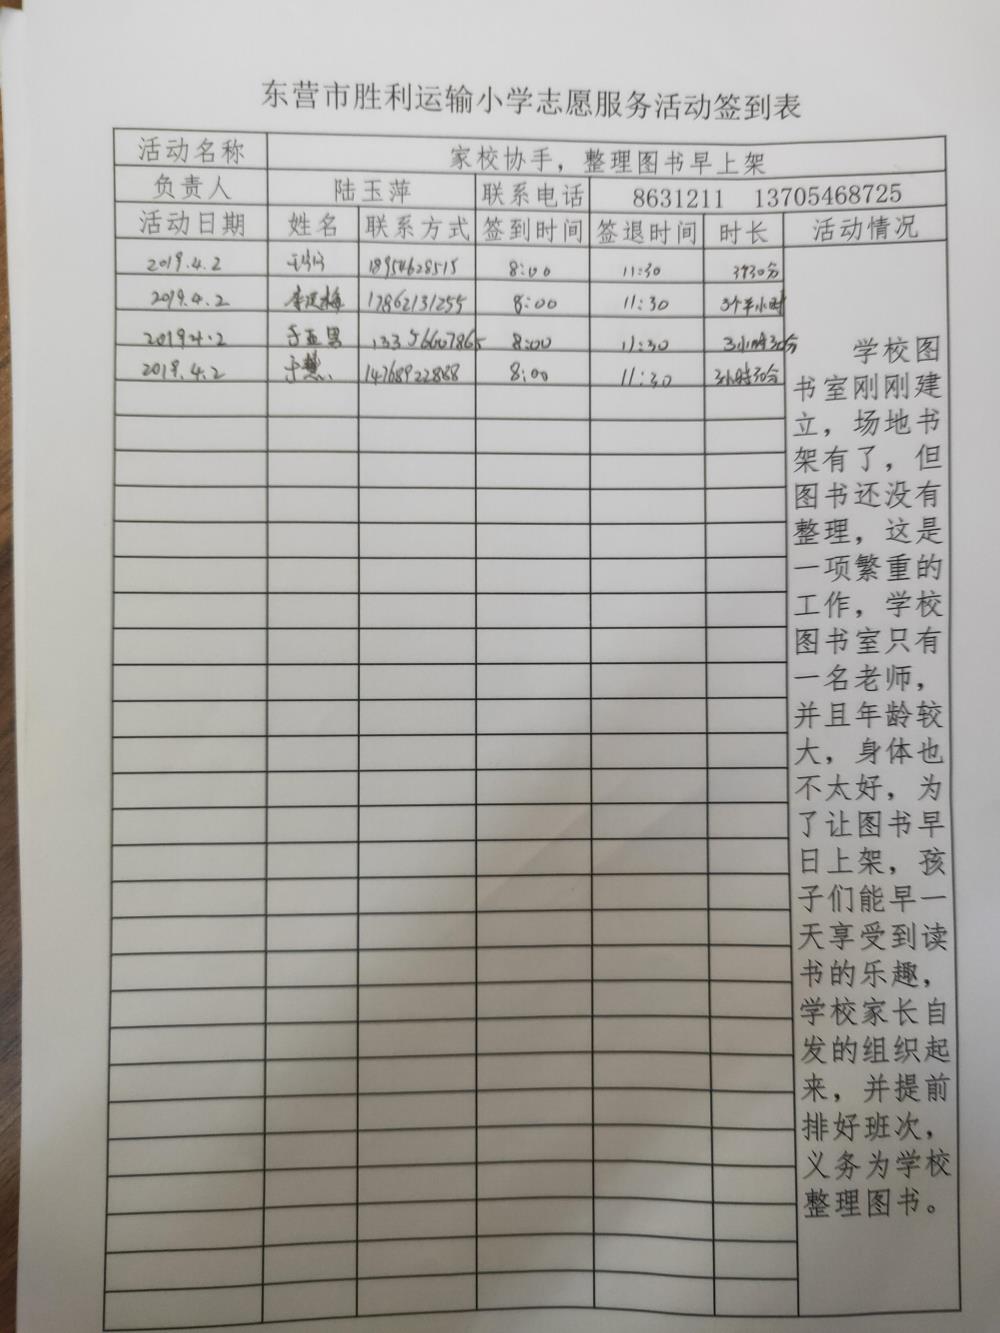 东营市胜利运输小学志愿服务活动签到表
活动名称 家校协手，整理图书早上架
负责人 陆玉萍 联系电话 8631211 13705468725
活动日期 姓名 联系方式 签到时间 签退时间 时长 活动情况
2019.4.2 18954628515 8:00 11:30
2019.4.2 17862131255 8:00 11:30 3个半小时
2019.4.2 于亚男 13356607865 8:00 11:30 3小时30分
2019.4.2 于慧 14768922888 8:00 11:30 3小时30分
学校图
书室刚刚建
立，场地书
架有了，但
图书还没有
整理，这是
一项繁重的
工作，学校
图书室只有
一名老师，
并且年龄较
大，身体也
不太好，为
了让图书早
日上架，孩
子们能早一
天享受到读
书的乐趣，
学校家长自
发的组织起
来，并提前
排好班次，
义务为学校
整理图书。